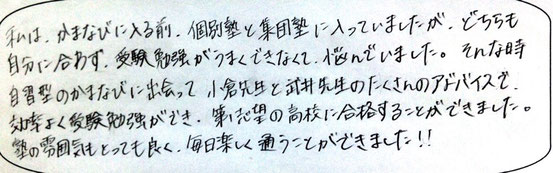 私は、かまなびに入る前、個別塾と集団塾に入っていましたが、どちらも
自分に合わず、受験勉強がうまくできなくて、悩んでいました。そんな時
自習型のかまなびに出会って 小倉先生と武井先生のたくさんのアドバイスで、
効率よく受験勉強ができ、第1志望の高校に合格することができました。
塾の雰囲気もとっても良く、毎日楽しく通うことができました!!